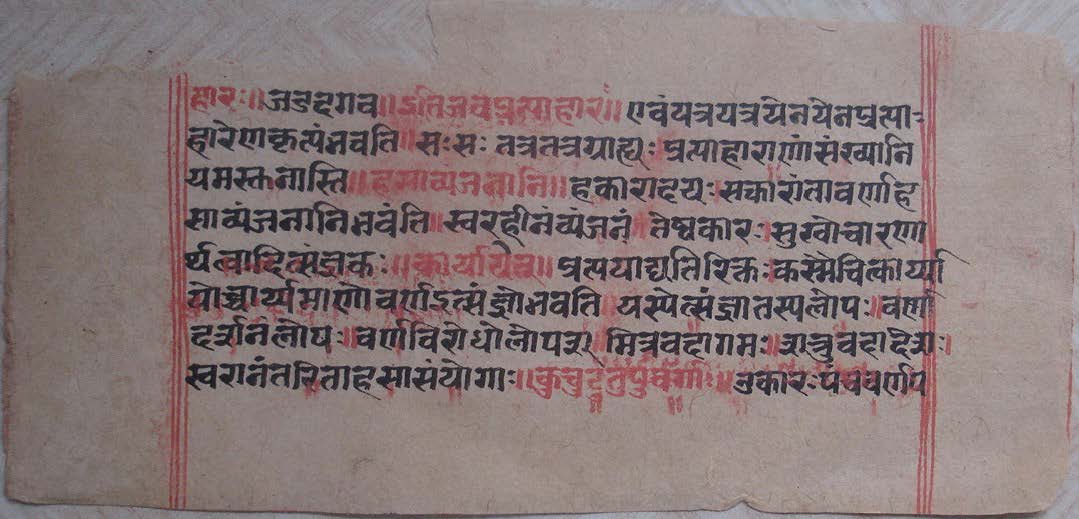 हारः॥ जडदगब॥ इतिजबप्रत्याहारः॥ एवंयत्रयत्रयेनयेनप्रत्या
हारेणकृत्यंभवति॥ सःसः तत्रतत्रग्राह्यः प्रत्याहाराणांसंख्यानि
यमस्तुनास्ति॥ हसाव्यंजनानि॥ हकारादयः सकारांतावर्णाह
साव्यंजनानिभवंति॥ स्वरहीनंव्यंजनं॥ तेष्वकारः सुखोच्चारणा
र्थत्वादित्संज्ञकः॥ कार्यायेत्॥ प्रत्ययाद्यतिरिक्तः कस्मैचित्कार्य्या
योच्चार्य्यमाणोवर्णइत्संज्ञोभवति यस्येत्संज्ञातस्यलोपः॥ वर्णा
दर्शनंलोपः॥ वर्णविरोधोलोपश् मित्रवदागमः॥ शत्रुवदादेशः।
स्वरानंतरिताहसासंयोगाः॥ कुचुटुतुपुवर्गाः॥ उकारः पंचवर्णप